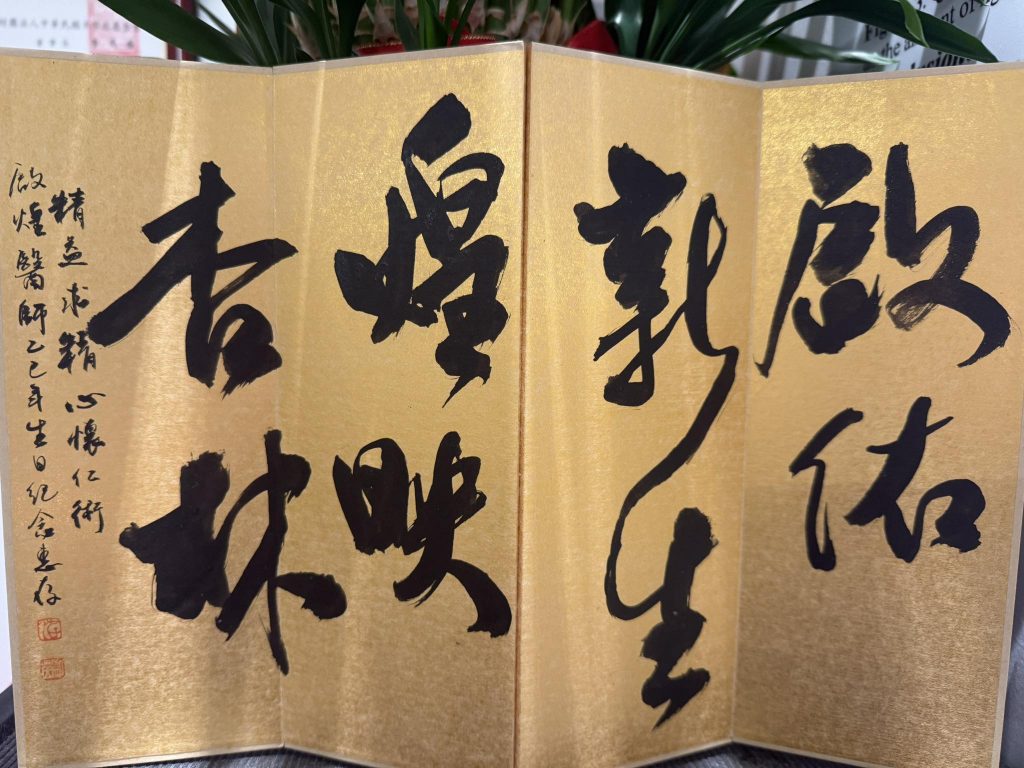 啟佑
新生
煌映
杏林
精益求精心懷仁術
啟煌醫師乙巳年生日紀念惠存